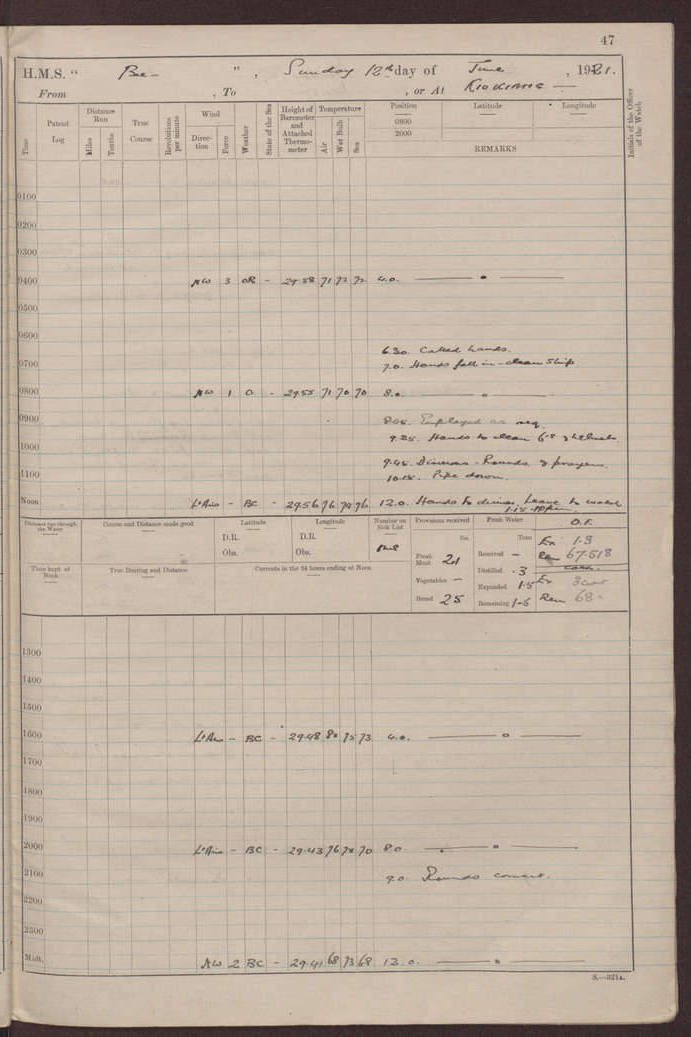 47
H.M.S. " Bee - ", Sunday 12th day of June, 1921.
From , To , or At KIUKIANG —
Time
Patent Log
Distance Run
Miles
Tenths
True Course
Revolutions per minute
Wind
Direction
Force
Weather
State of the Sea
Height of Barometer and Attached Thermometer
Temperature
Air
Wet Bulb
Sea
Position
0800
2000
Latitude
Longitude
REMARKS
Initials of the Officer of the Watch
0100
0200
0300
0400 NW 3 OR - 29.58 71 72 72 4.0. — " —
0500
0600
6.30. Called hands.
0700 7.0. Hands fall in - clean Ship
0800 NW 1 O - 29.55 71 70 70 8.0 — " —
0900 8.05. Employed as req.
9.25. Hands to clean
1000
9.45. Divisions - Rounds & prayers.
1100 10.15. Pipe down.
Noon Lt Airs - BC - 29.56 76 74 76 12.0. Hands to dinner. Leave to
1.15
Distance run through the Water
Course and Distance made good
Latitude
D.R.
Obs.
Longitude
D.R.
Obs.
Number on Sick List
Provisions received
lbs.
Fresh Meat 21
Vegetables —
Bread 25
Fresh Water
Tons
Received —
Distilled .3
Expended 1.5
Remaining 1-5
O.F.
Ex 1.3
Rem 67.518
Ex 3 cwt
Rem 68
Zone kept at Noon
True Bearing and Distance
Currents in the 24 hours ending at Noon
1300
1400
1500
1600 Lt Airs - BC - 29.48 80 75 73 4.0. — " —
1700
1800
1900
2000 Lt Airs - BC - 29.43 76 74 70 8.0 — " —
2100 9.0. Rounds correct.
2200
2300
Midt. NW 2 BC - 29.41 68 73 68 12.0. — " —
S.—321a.